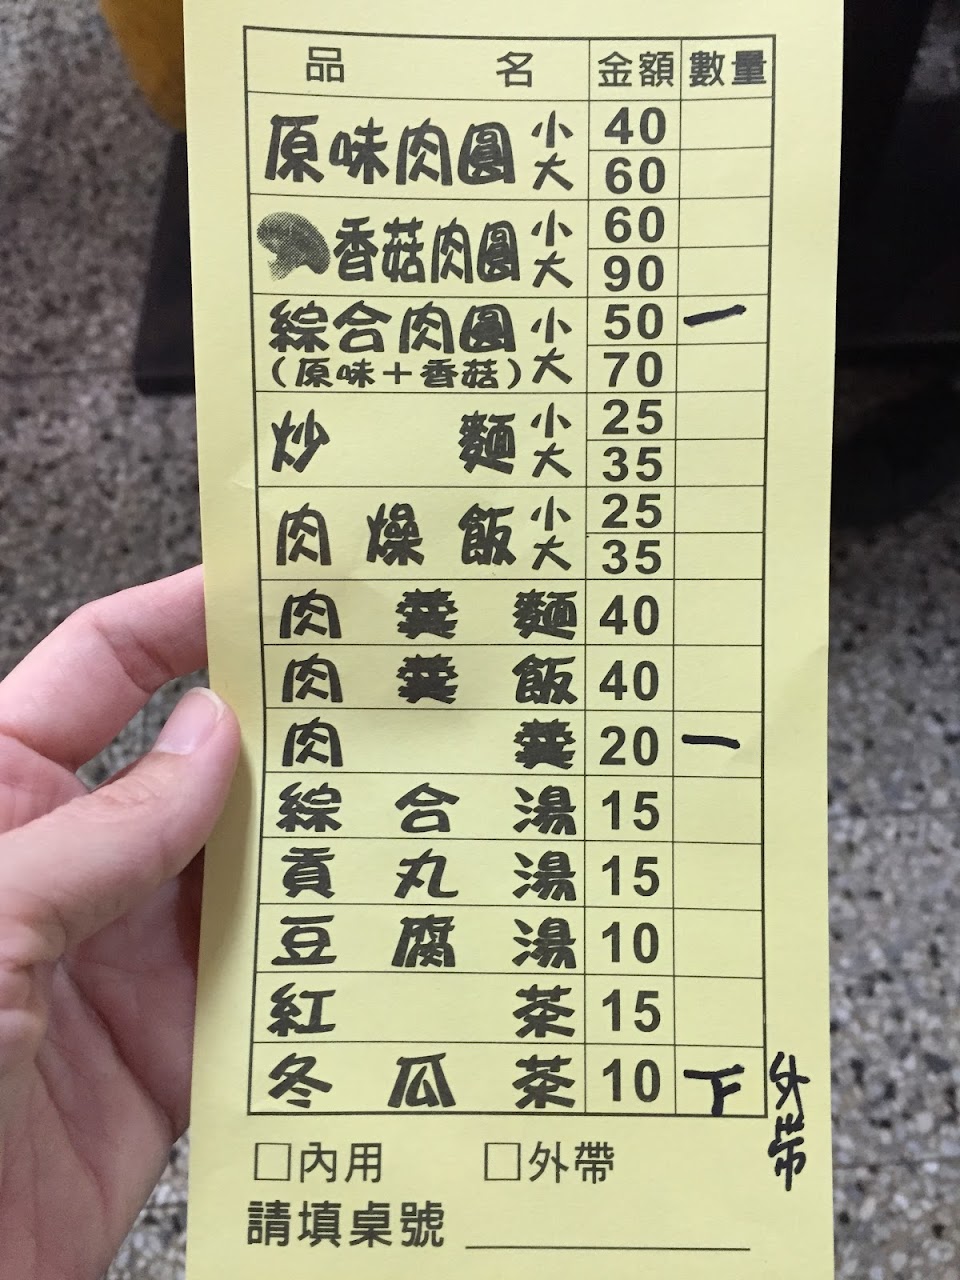 品名 金額 數量
原味肉圓 小 40
大 60
香菇肉圓 小 60
大 90
綜合肉圓 小 50 一
(原味+香菇) 大 70
炒麵 小 25
大 35
肉燥飯 小 25
大 35
肉羹麵 40
肉羹飯 40
肉羹 20 一
綜合湯 15
貢丸湯 15
豆腐湯 10
紅茶 15
冬瓜茶 10 下 外帶
□內用 □外帶
請填桌號